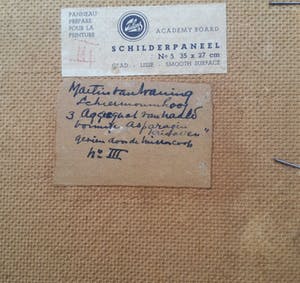 PANNEAU
PREPARÉ
POUR LA
PEINTURE
Talens
ACADEMY BOARD
SCHILDERPANEEL
No 5 35 x 27 cm
GLAD - LISSE - SMOOTH SURFACE
Martin van Waning
Schiermonnikoog
3 Aggregaat van
Asparagin
Kristallen"
gezien door de microscoop
No III